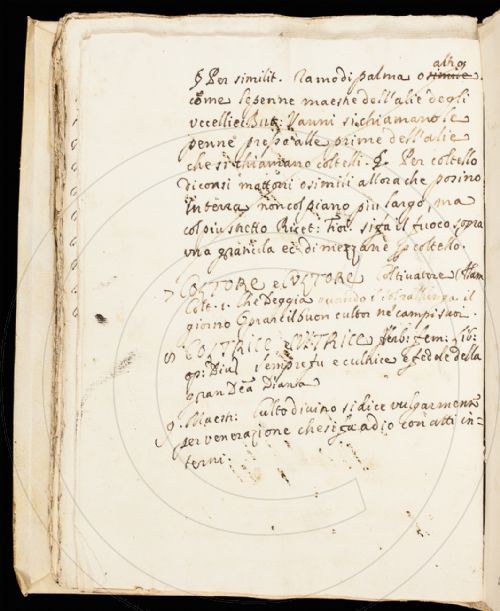 altro
§ Per similit. Ramo di palma o simile.
come le penne maestre dell'alie degli
uccelli But: Vanni si chiamano le
penne presso alle prime dell'alie
che si chiamano coltelli. §. Per coltello
Diconsi mattoni o simili allora che posino
In terra non col piano piu largo, ma
col piu stretto Ricet: Fior. si fa il fuoco sopra
una graticula di mezzane p coltello.
7 CULTORE e CULTORE Coltivatore
Colt. 1. che veggia quando il
giorno buon cultor ne campi suoi
8 CULTRICE CULTRICE Verb: fem:
e cultrice e fedele della
gran Dea Diana
9. Maest: Culto divino si dice vulgarmente
per venerazione che si fa a dio con atti in=
terni.